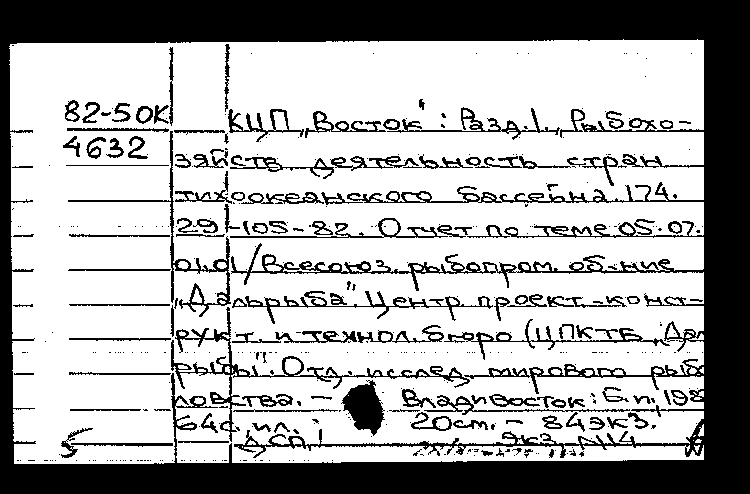 82-5 ОК
4632
КЦП „Восток“: Разд. 1. „Рыбохо-
зяйств. деятельность стран
тихоокеанского бассейна. 174.
29-105-82. Отчет по теме 05.07.
01.01/Всесоюз. рыбопром. об-ние
„Дальрыба“. Центр. проект.-конст-
рукт. и технол. бюро (ЦПКТБ „Дал
рыбы“. Отд. исслед. мирового рыбо
ловства. – Владивосток: Б.и., 198
64с., ил.; 20см. – 84экз.
ДСП,! Экз. N14